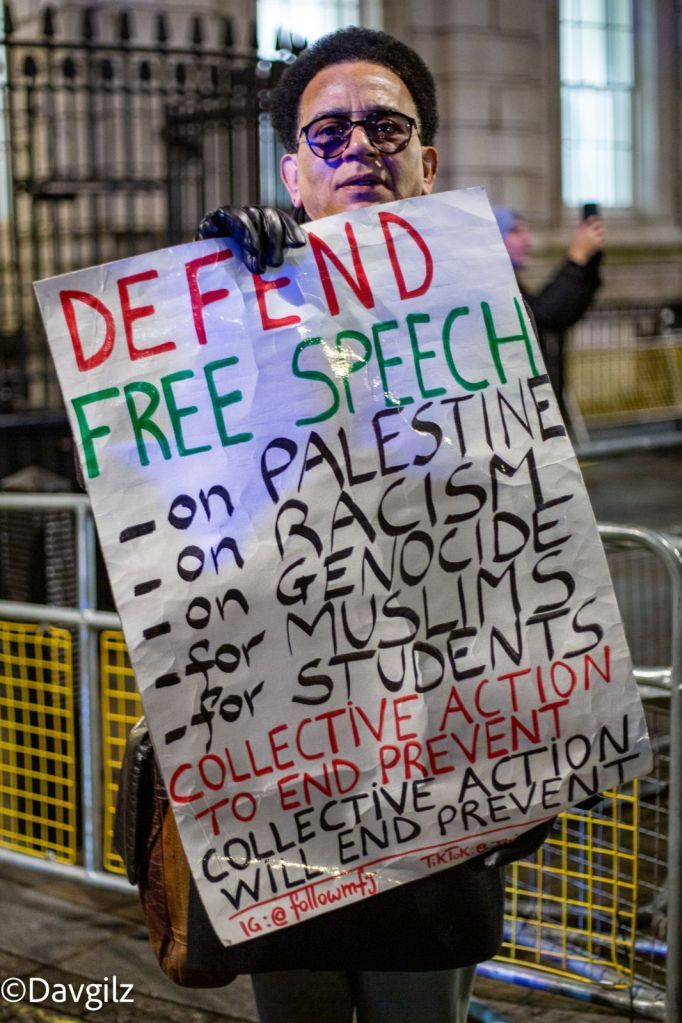 DEFEND
FREE SPEECH
- on PALESTINE
- on RACISM
- on GENOCIDE
- for MUSLIMS
- for STUDENTS
COLLECTIVE ACTION
TO END PREVENT
COLLECTIVE ACTION
WILL END PREVENT
IG:@followmfj TIKTOK:@
©Davgilz